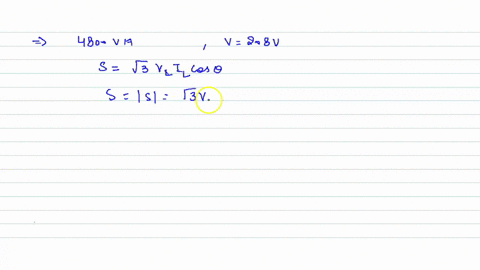 ⇒ 4800 VA , V = 208V
S = √3 V_L I_L cos θ
S = |S| = √3 V.